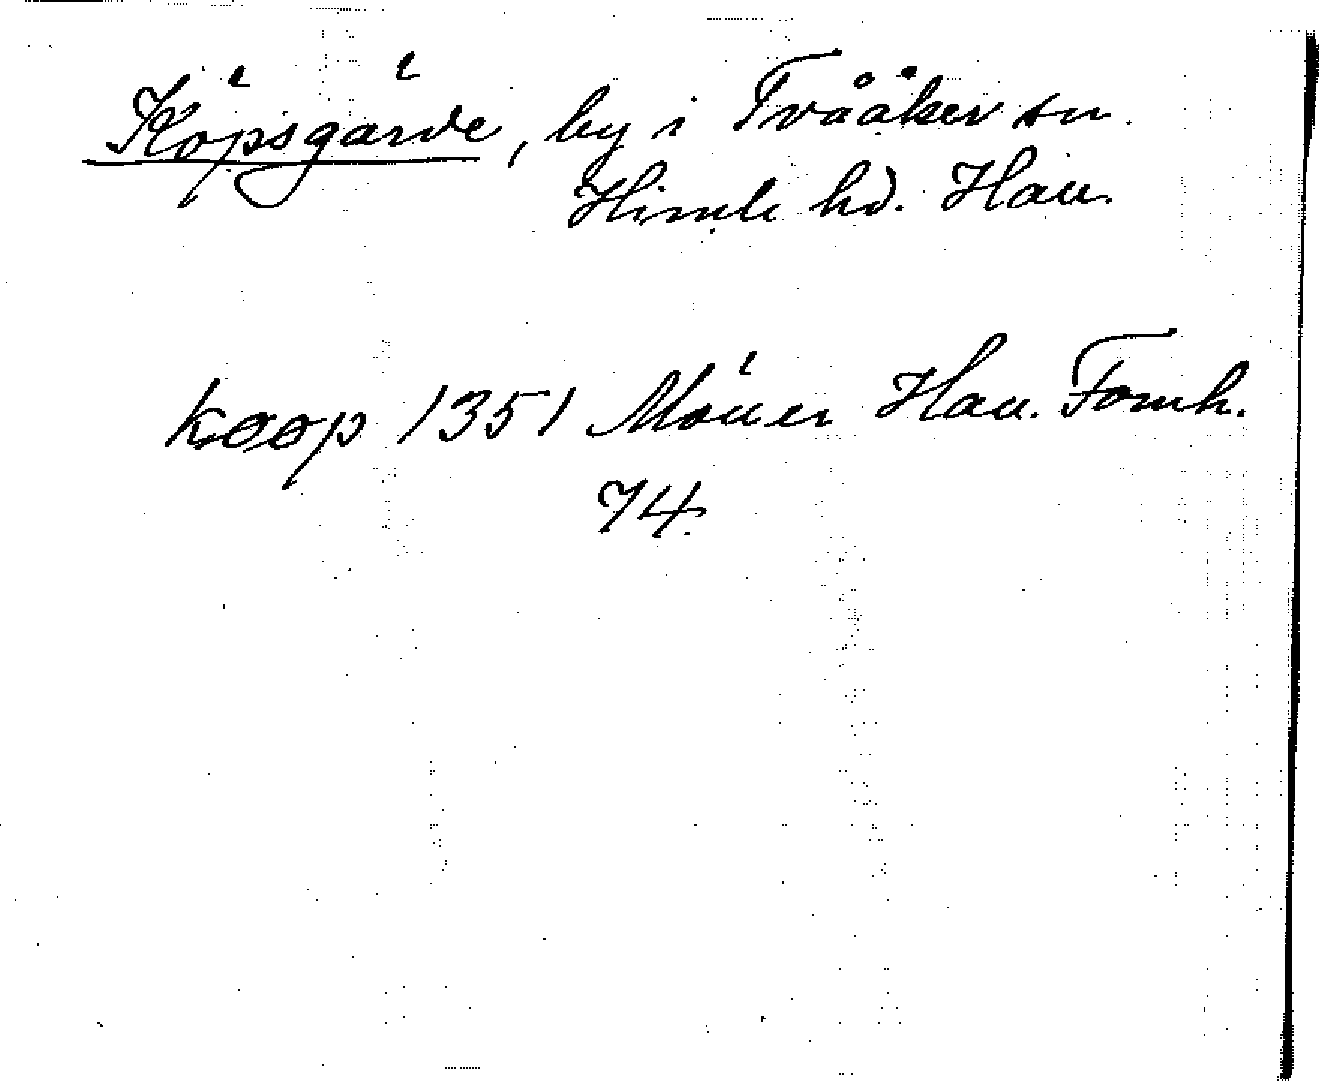 Köpsgärde, by i Tvååker sn.
Himle hd. Hall.
køøp 1351 Möller Hall. Fornh.
74.